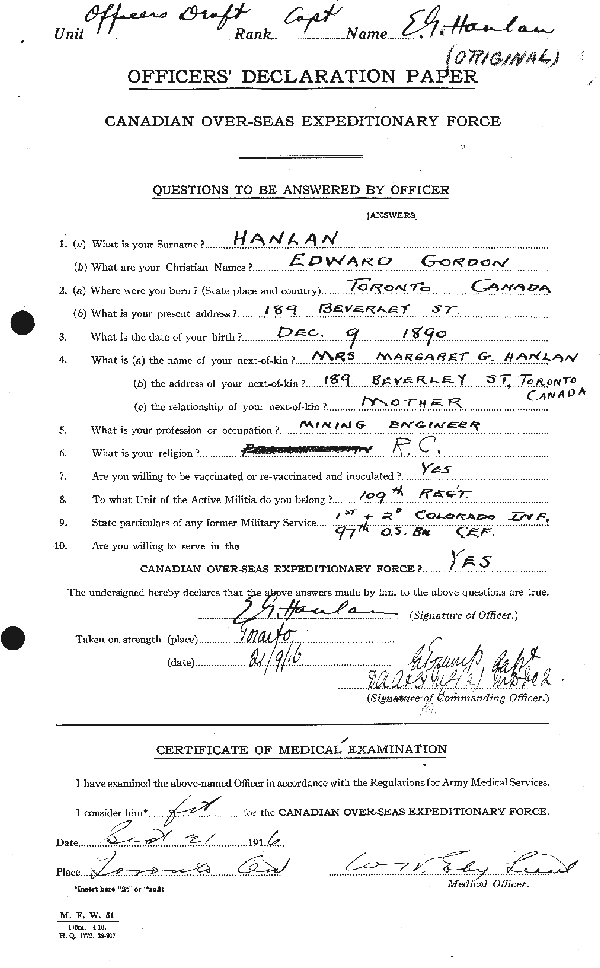 Unit Officers Draft Rank Capt Name E.G. Hanlan
(ORIGINAL)
OFFICERS' DECLARATION PAPER
CANADIAN OVER-SEAS EXPEDITIONARY FORCE
QUESTIONS TO BE ANSWERED BY OFFICER
(ANSWERS)
1. (a) What is your Surname? HANLAN
(b) What are your Christian Names? EDWARD GORDON
2. (a) Where were you born? (State place and country) TORONTO CANADA
(b) What is your present address? 189 BEVERLEY ST
3. What is the date of your birth? DEC. 9 1890
4. What is (a) the name of your next-of-kin? MRS MARGARET G. HANLAN
(b) the address of your next-of-kin? 189 BEVERLEY ST, TORONTO
CANADA
(c) the relationship of your next-of-kin? MOTHER
5. What is your profession or occupation? MINING ENGINEER
6. What is your religion? R.C.
7. Are you willing to be vaccinated or re-vaccinated and inoculated? YES
8. To what Unit of the Active Militia do you belong? 109th REGT
9. State particulars of any former Military Service. 1st + 2d COLORADO INF.
97th O.S. BN CEF.
10. Are you willing to serve in the
CANADIAN OVER-SEAS EXPEDITIONARY FORCE? YES
The undersigned hereby declares that the above answers made by him to the above questions are true.
E.G. Hanlan (Signature of Officer.)
Taken on strength (place) Toronto
(date) 21/9/16
Capt
(Signature of Commanding Officer.)
CERTIFICATE OF MEDICAL EXAMINATION
I have examined the above-named Officer in accordance with the Regulations for Army Medical Services.
I consider him* fit for the CANADIAN OVER-SEAS EXPEDITIONARY FORCE.
Date Sept 21 1916
Place Toronto
Medical Officer.
*Insert here "fit" or "unfit"
M. F. W. 51
H. Q. 1772. 39-917